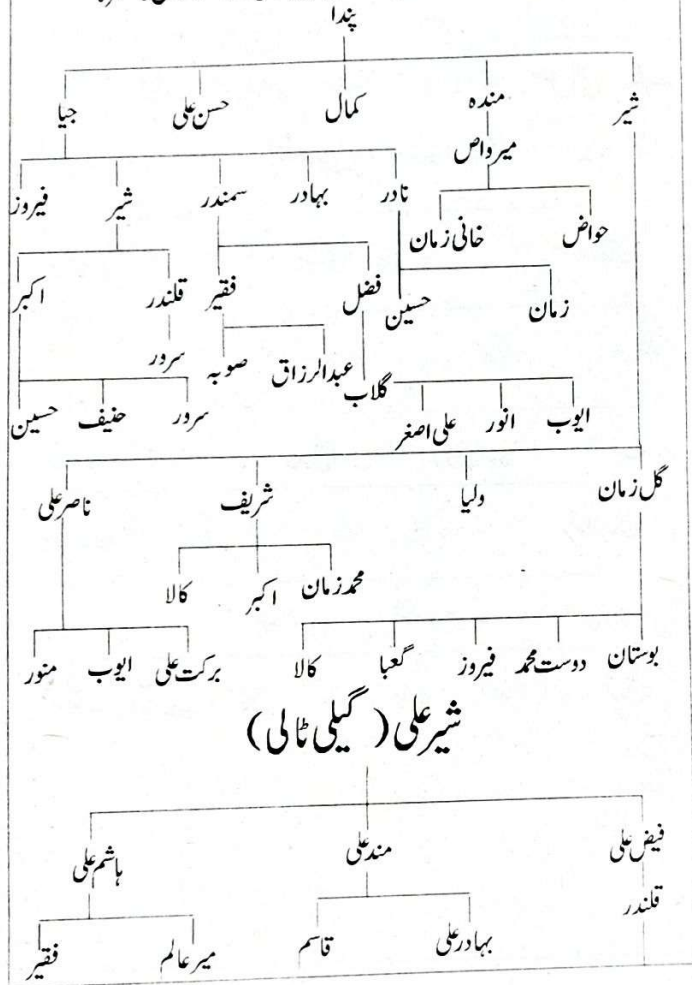 پندا
شیر مندہ کمال حسن علی جیا
میر واص
نادر بہادر سمندر شیر فیروز
حواض خانی زمان
زمان حسین فضل فقیر قلندر اکبر
سرور
گلاب عبدالرزاق صوبہ
ایوب انور علی اصغر سرور حنیف حسین
گل زمان ولیا شریف ناصر علی
محمد زمان اکبر کالا
بوستان دوست محمد فیروز گعبا کالا برکت علی ایوب منور
شیر علی ( گیلی ٹالی)
فیض علی مند علی ہاشم علی
قلندر
بہادر علی قاسم میر عالم فقیر